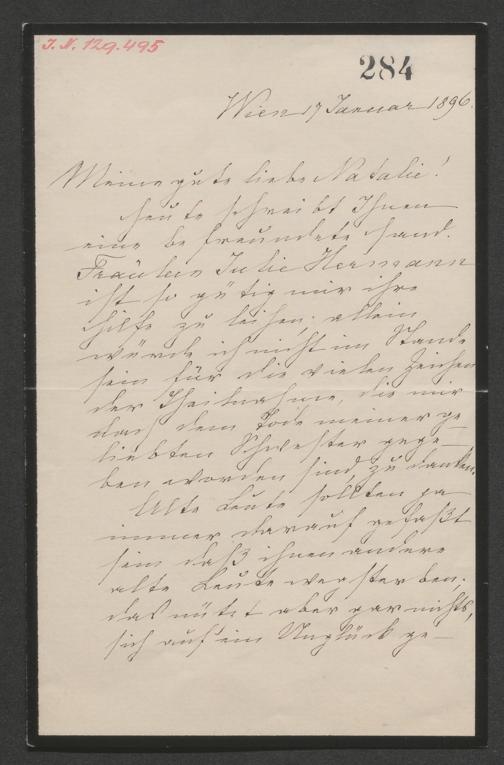 J. N. 129.495
284
Wien 17 Januar 1896.
Meine gute liebe Natalie!
Heute schreibt Ihnen
eine befreundete Hand.
Fräulein Julie Hermann
ist so gütig mir ihre
Hilfe zu leihen; allein
würde ich nicht im Stande
sein für die vielen Zeichen
der Theilnahme, die mir
nach dem Tode meiner ge-
liebten Schwester gege-
ben worden sind zu danken.
Alte Leute sollten ja
immer darauf gefaßt
sein daß ihnen andere
alte Leute wegsterben;
das nützt aber gar nichts,
sich auf ein Unglück ge-